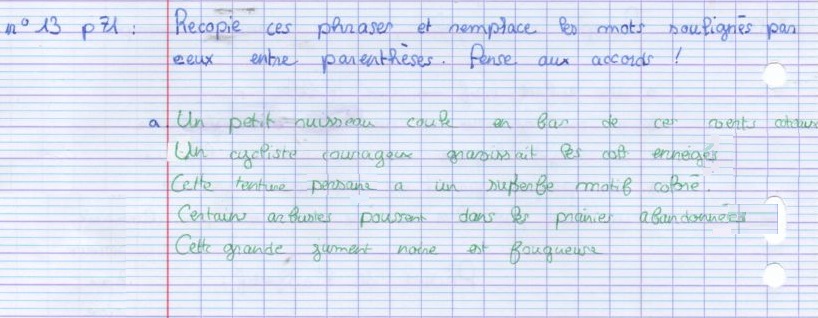 n° 13 p 71 : Recopie ces phrases et remplace les mots soulignés par
ceux entre parenthèses. Pense aux accords !
a Un petit ruisseau coule en bas de ces
Un cycliste courageux gravissait les enneigés
Cette tenture persane a un superbe motif
Certain arbustes poussent dans les prairies abandonnées
Cette grande jument noire est fougueuse